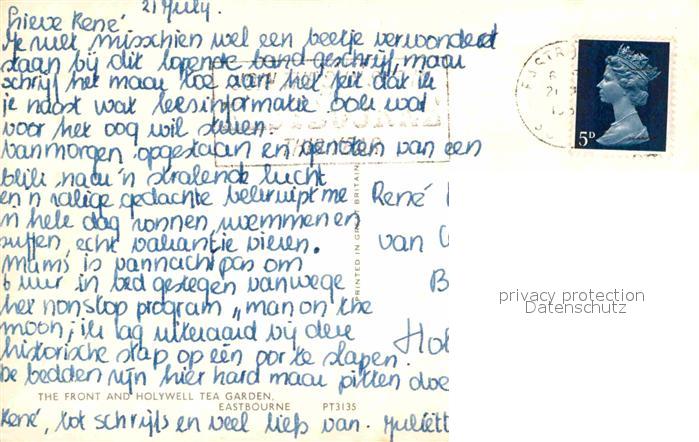 21 July.
Lieve René
Je mut misschien wel een beetje verwonderd
staan bij dit lopende band geschrijf, maar
schrijf het maar toe aan het feit dat ik
je naast wat leesinformatie ook wat
voor het oog wil sturen.
Vanmorgen opgestaan en genoten van een
blik naar 'n stralende lucht
en 'n zalige gedachte bekruipt me
'n hele dag zonnen, zwemmen en
suffen, echt vakantie vieren.
Mums is vannacht pas om
6 uur in bed gestegen vanwege
het nonstop program „man on the
moon; ik lag uiteraard bij deze
historische stap op één oor te slapen.
De bedden zijn hier hard maar pitten doe
René, tot schrijfs en veel liefs van Juliëtt
René
van
B
Hol
5D
PRINTED IN GREAT BRITAIN
THE FRONT AND HOLYWELL TEA GARDEN,
EASTBOURNE PT3135
privacy protection
Datenschutz